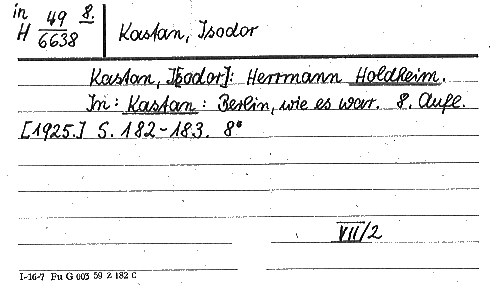 in
H 49 8.
6638
Kastan, Isodor
Kastan, I[sodor]: Herrmann Holdheim.
In: Kastan: Berlin, wie es war. 8. Aufl.
[1925.] S. 182-183. 8°
VII/2
I-16-7 Fu G 003 59 2 182 C